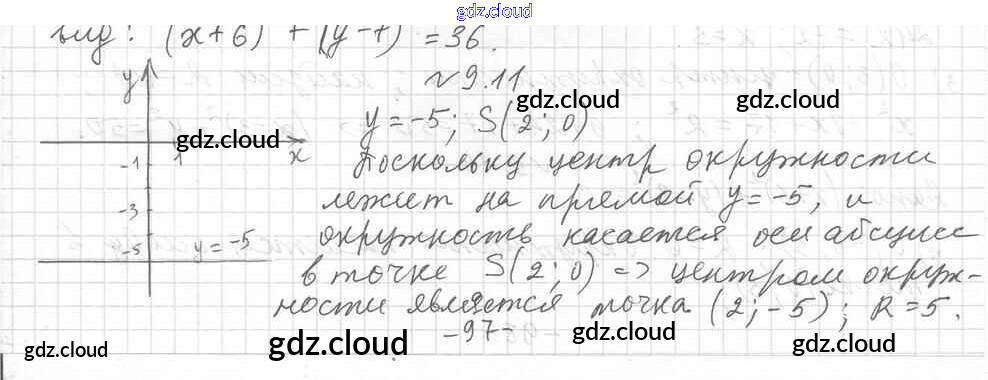 gdz.cloud
вид: (x+6) + (y-7) = 36.
№9.11
y = -5; S(2; 0)
Поскольку центр окружности
лежит на прямой y = -5, и
окружность касается оси абсцисс
в точке S(2; 0) => центром окруж-
ности является точка (2; -5); R = 5.
y
1
x
-1
-3
-5
y = -5
-97-
gdz.cloud
gdz.cloud
gdz.cloud
gdz.cloud
gdz.cloud
gdz.cloud
gdz.cloud
gdz.cloud